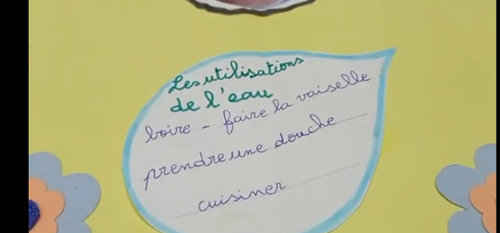 Les utilisations
de l'eau
boire - faire la vaiselle
prendre une douche
cuisiner